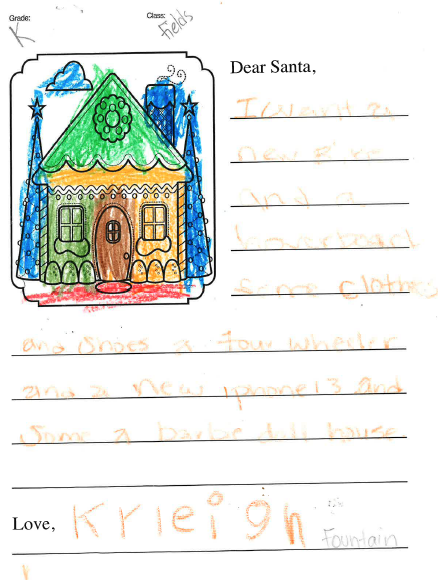 Grade: K
Class: Fields
Dear Santa,
I want a
new
And a
hoverboard
Some clothes
and Shoes a four wheeler
and a new iphone13 and
Some a barbe doll house
Love, Krleigh Fountain